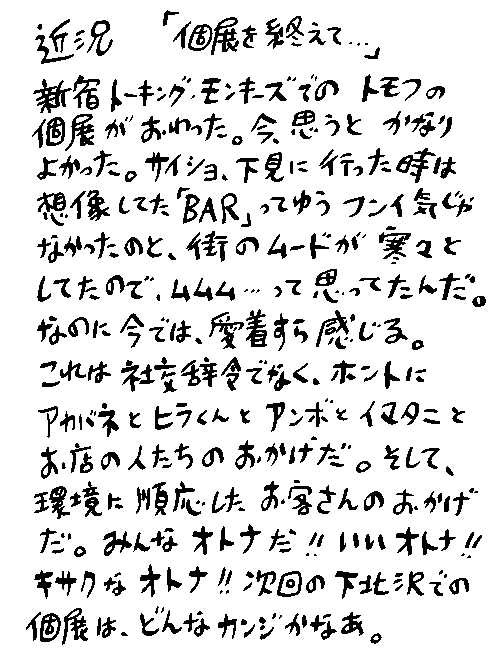 近況 「個展を終えて…」
新宿トーキング・モンキーズでの トモフの
個展が おわった。今、思うと かなり
よかった。サイショ、下見に 行った時は
想像してた「BAR」ってゆう フンイ気じゃ
なかったのと、街のムードが 寒々と
してたので、ムムム…って 思ってたんだ。
なのに 今では、愛着すら 感じる。
これは 社交辞令でなく、ホントに
アカバネと ヒラくんと アンボと イマタニと
お店の人たちの おかげだ。そして、
環境に 順応した お客さんの おかげ
だ。みんな オトナだ!! いい オトナ!!
キサクな オトナ!! 次回の 下北沢での
個展は、どんな カンジかなぁ。